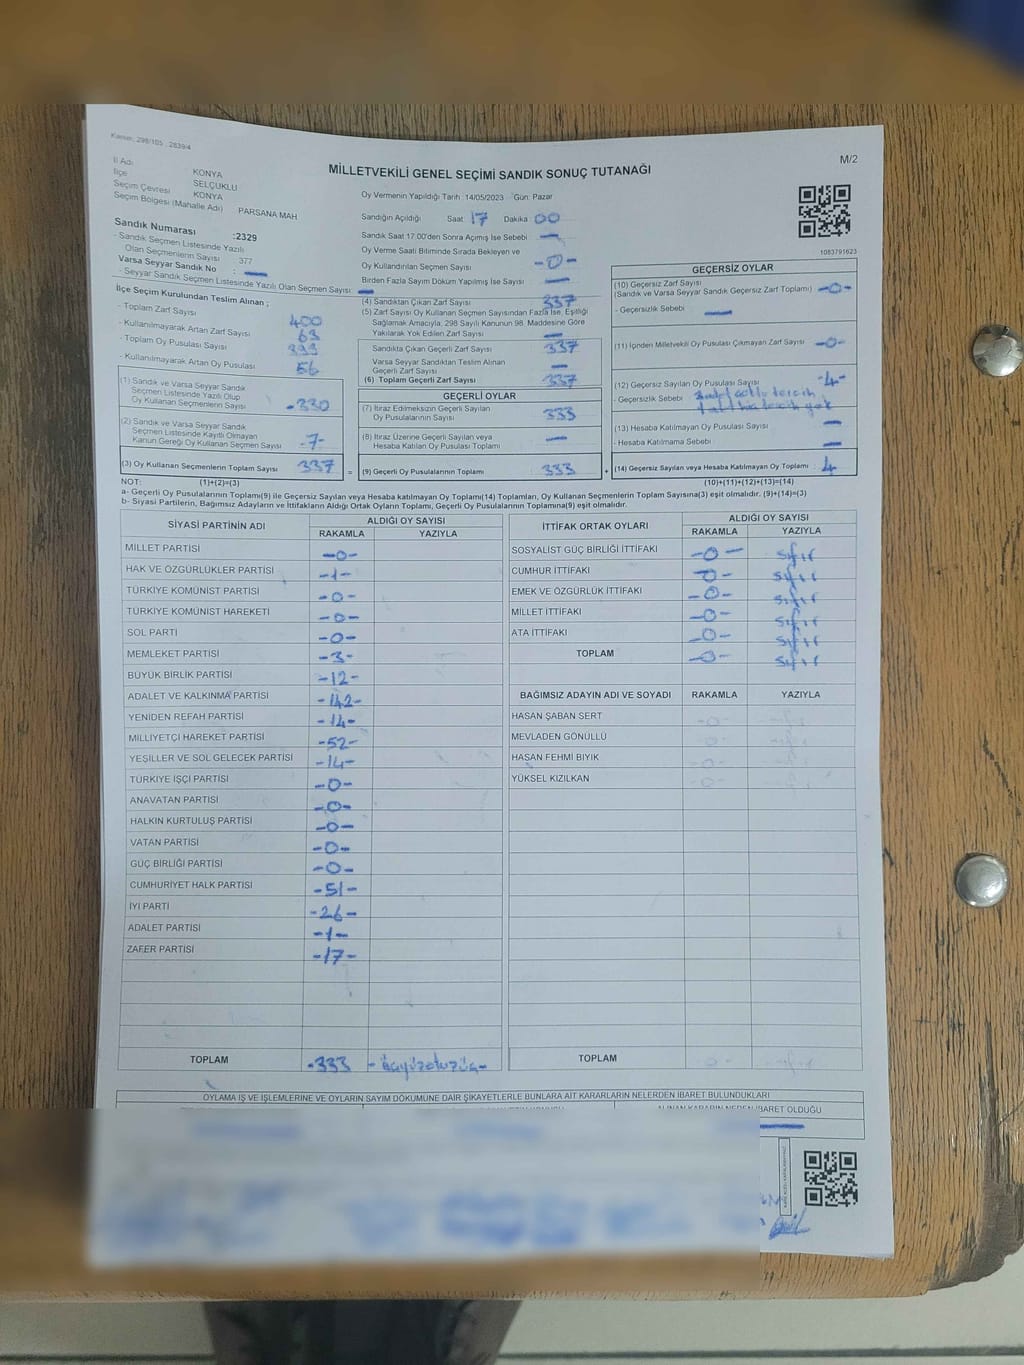 Kanun: 298/105 2839/4
M/2
MİLLETVEKİLİ GENEL SEÇİMİ SANDIK SONUÇ TUTANAĞI
İl Adı KONYA
İlçe SELÇUKLU
Seçim Çevresi KONYA
Seçim Bölgesi (Mahalle Adı) PARSANA MAH
Sandık Numarası :2329
- Sandık Seçmen Listesinde Yazılı
Olan Seçmenlerin Sayısı 377
Varsa Seyyar Sandık No : —
- Seyyar Sandık Seçmen Listesinde Yazılı Olan Seçmen Sayısı: —
İlçe Seçim Kurulundan Teslim Alınan ;
- Toplam Zarf Sayısı 400
- Kullanılmayarak Artan Zarf Sayısı 63
- Toplam Oy Pusulası Sayısı 393
- Kullanılmayarak Artan Oy Pusulası 56
(1) Sandık ve Varsa Seyyar Sandık
Seçmen Listesinde Yazılı Olup
Oy Kullanan Seçmenlerin Sayısı -330
(2) Sandık ve Varsa Seyyar Sandık
Seçmen Listesinde Kayıtlı Olmayan
Kanun Gereği Oy Kullanan Seçmen Sayısı -7-
(3) Oy Kullanan Seçmenlerin Toplam Sayısı 337
Oy Vermenin Yapıldığı Tarih: 14/05/2023 Gün: Pazar
Sandığın Açıldığı Saat 17 Dakika 00
Sandık Saat 17:00'den Sonra Açılmış İse Sebebi —
Oy Verme Saati Bitiminde Sırada Bekleyen ve
Oy Kullandırılan Seçmen Sayısı -0-
Birden Fazla Sayım Döküm Yapılmış İse Sayısı —
(4) Sandıktan Çıkan Zarf Sayısı 337
(5) Zarf Sayısı Oy Kullanan Seçmen Sayısından Fazla İse, Eşitliği
Sağlamak Amacıyla; 298 Sayılı Kanunun 98. Maddesine Göre
Yakılarak Yok Edilen Zarf Sayısı —
Sandıkta Çıkan Geçerli Zarf Sayısı 337
Varsa Seyyar Sandıktan Teslim Alınan
Geçerli Zarf Sayısı —
(6) Toplam Geçerli Zarf Sayısı 337
GEÇERLİ OYLAR
(7) İtiraz Edilmeksizin Geçerli Sayılan
Oy Pusulalarının Sayısı 333
(8) İtiraz Üzerine Geçerli Sayılan veya
Hesaba Katılan Oy Pusulası Toplamı —
= (9) Geçerli Oy Pusulalarının Toplamı 333 +
1083791623
GEÇERSİZ OYLAR
(10) Geçersiz Zarf Sayısı
(Sandık ve Varsa Seyyar Sandık Geçersiz Zarf Toplamı) -0-
- Geçersizlik Sebebi —
(11) İçinden Milletvekili Oy Pusulası Çıkmayan Zarf Sayısı -0-
(12) Geçersiz Sayılan Oy Pusulası Sayısı -4-
- Geçersizlik Sebebi tercih
yok
(13) Hesaba Katılmayan Oy Pusulası Sayısı —
- Hesaba Katılmama Sebebi —
(14) Geçersiz Sayılan veya Hesaba Katılmayan Oy Toplamı 4
NOT: (1)+(2)=(3) (10)+(11)+(12)+(13)=(14)
a- Geçerli Oy Pusulalarının Toplamı(9) ile Geçersiz Sayılan veya Hesaba katılmayan Oy Toplamı(14) Toplamları, Oy Kullanan Seçmenlerin Toplam Sayısına(3) eşit olmalıdır. (9)+(14)=(3)
b- Siyasi Partilerin, Bağımsız Adayların ve İttifakların Aldığı Ortak Oyların Toplamı, Geçerli Oy Pusulalarının Toplamına(9) eşit olmalıdır.
SİYASİ PARTİNİN ADI ALDIĞI OY SAYISI
RAKAMLA YAZIYLA
MİLLET PARTİSİ -0-
HAK VE ÖZGÜRLÜKLER PARTİSİ -1-
TÜRKİYE KOMÜNİST PARTİSİ -0-
TÜRKİYE KOMÜNİST HAREKETİ -0-
SOL PARTİ -0-
MEMLEKET PARTİSİ -3-
BÜYÜK BİRLİK PARTİSİ -12-
ADALET VE KALKINMA PARTİSİ -142-
YENİDEN REFAH PARTİSİ -14-
MİLLİYETÇİ HAREKET PARTİSİ -52-
YEŞİLLER VE SOL GELECEK PARTİSİ -14-
TÜRKİYE İŞÇİ PARTİSİ -0-
ANAVATAN PARTİSİ -0-
HALKIN KURTULUŞ PARTİSİ -0-
VATAN PARTİSİ -0-
GÜÇ BİRLİĞİ PARTİSİ -0-
CUMHURİYET HALK PARTİSİ -51-
İYİ PARTİ -26-
ADALET PARTİSİ -1-
ZAFER PARTİSİ -17-
TOPLAM -333 - üçyüzotuzüç-
İTTİFAK ORTAK OYLARI ALDIĞI OY SAYISI
RAKAMLA YAZIYLA
SOSYALİST GÜÇ BİRLİĞİ İTTİFAKI -0- sıfır
CUMHUR İTTİFAKI -0- sıfır
EMEK VE ÖZGÜRLÜK İTTİFAKI -0- sıfır
MİLLET İTTİFAKI -0- sıfır
ATA İTTİFAKI -0- sıfır
TOPLAM -0- sıfır
BAĞIMSIZ ADAYIN ADI VE SOYADI RAKAMLA YAZIYLA
HASAN ŞABAN SERT -0-
MEVLADEN GÖNÜLLÜ -0-
HASAN FEHMİ BIYIK -0-
YÜKSEL KIZILKAN -0-
TOPLAM -0-
OYLAMA İŞ VE İŞLEMLERİNE VE OYLARIN SAYIM DÖKÜMÜNE DAİR ŞİKAYETLERLE BUNLARA AİT KARARLARIN NELERDEN İBARET BULUNDUKLARI
ALINAN KARARIN NEDEN İBARET OLDUĞU